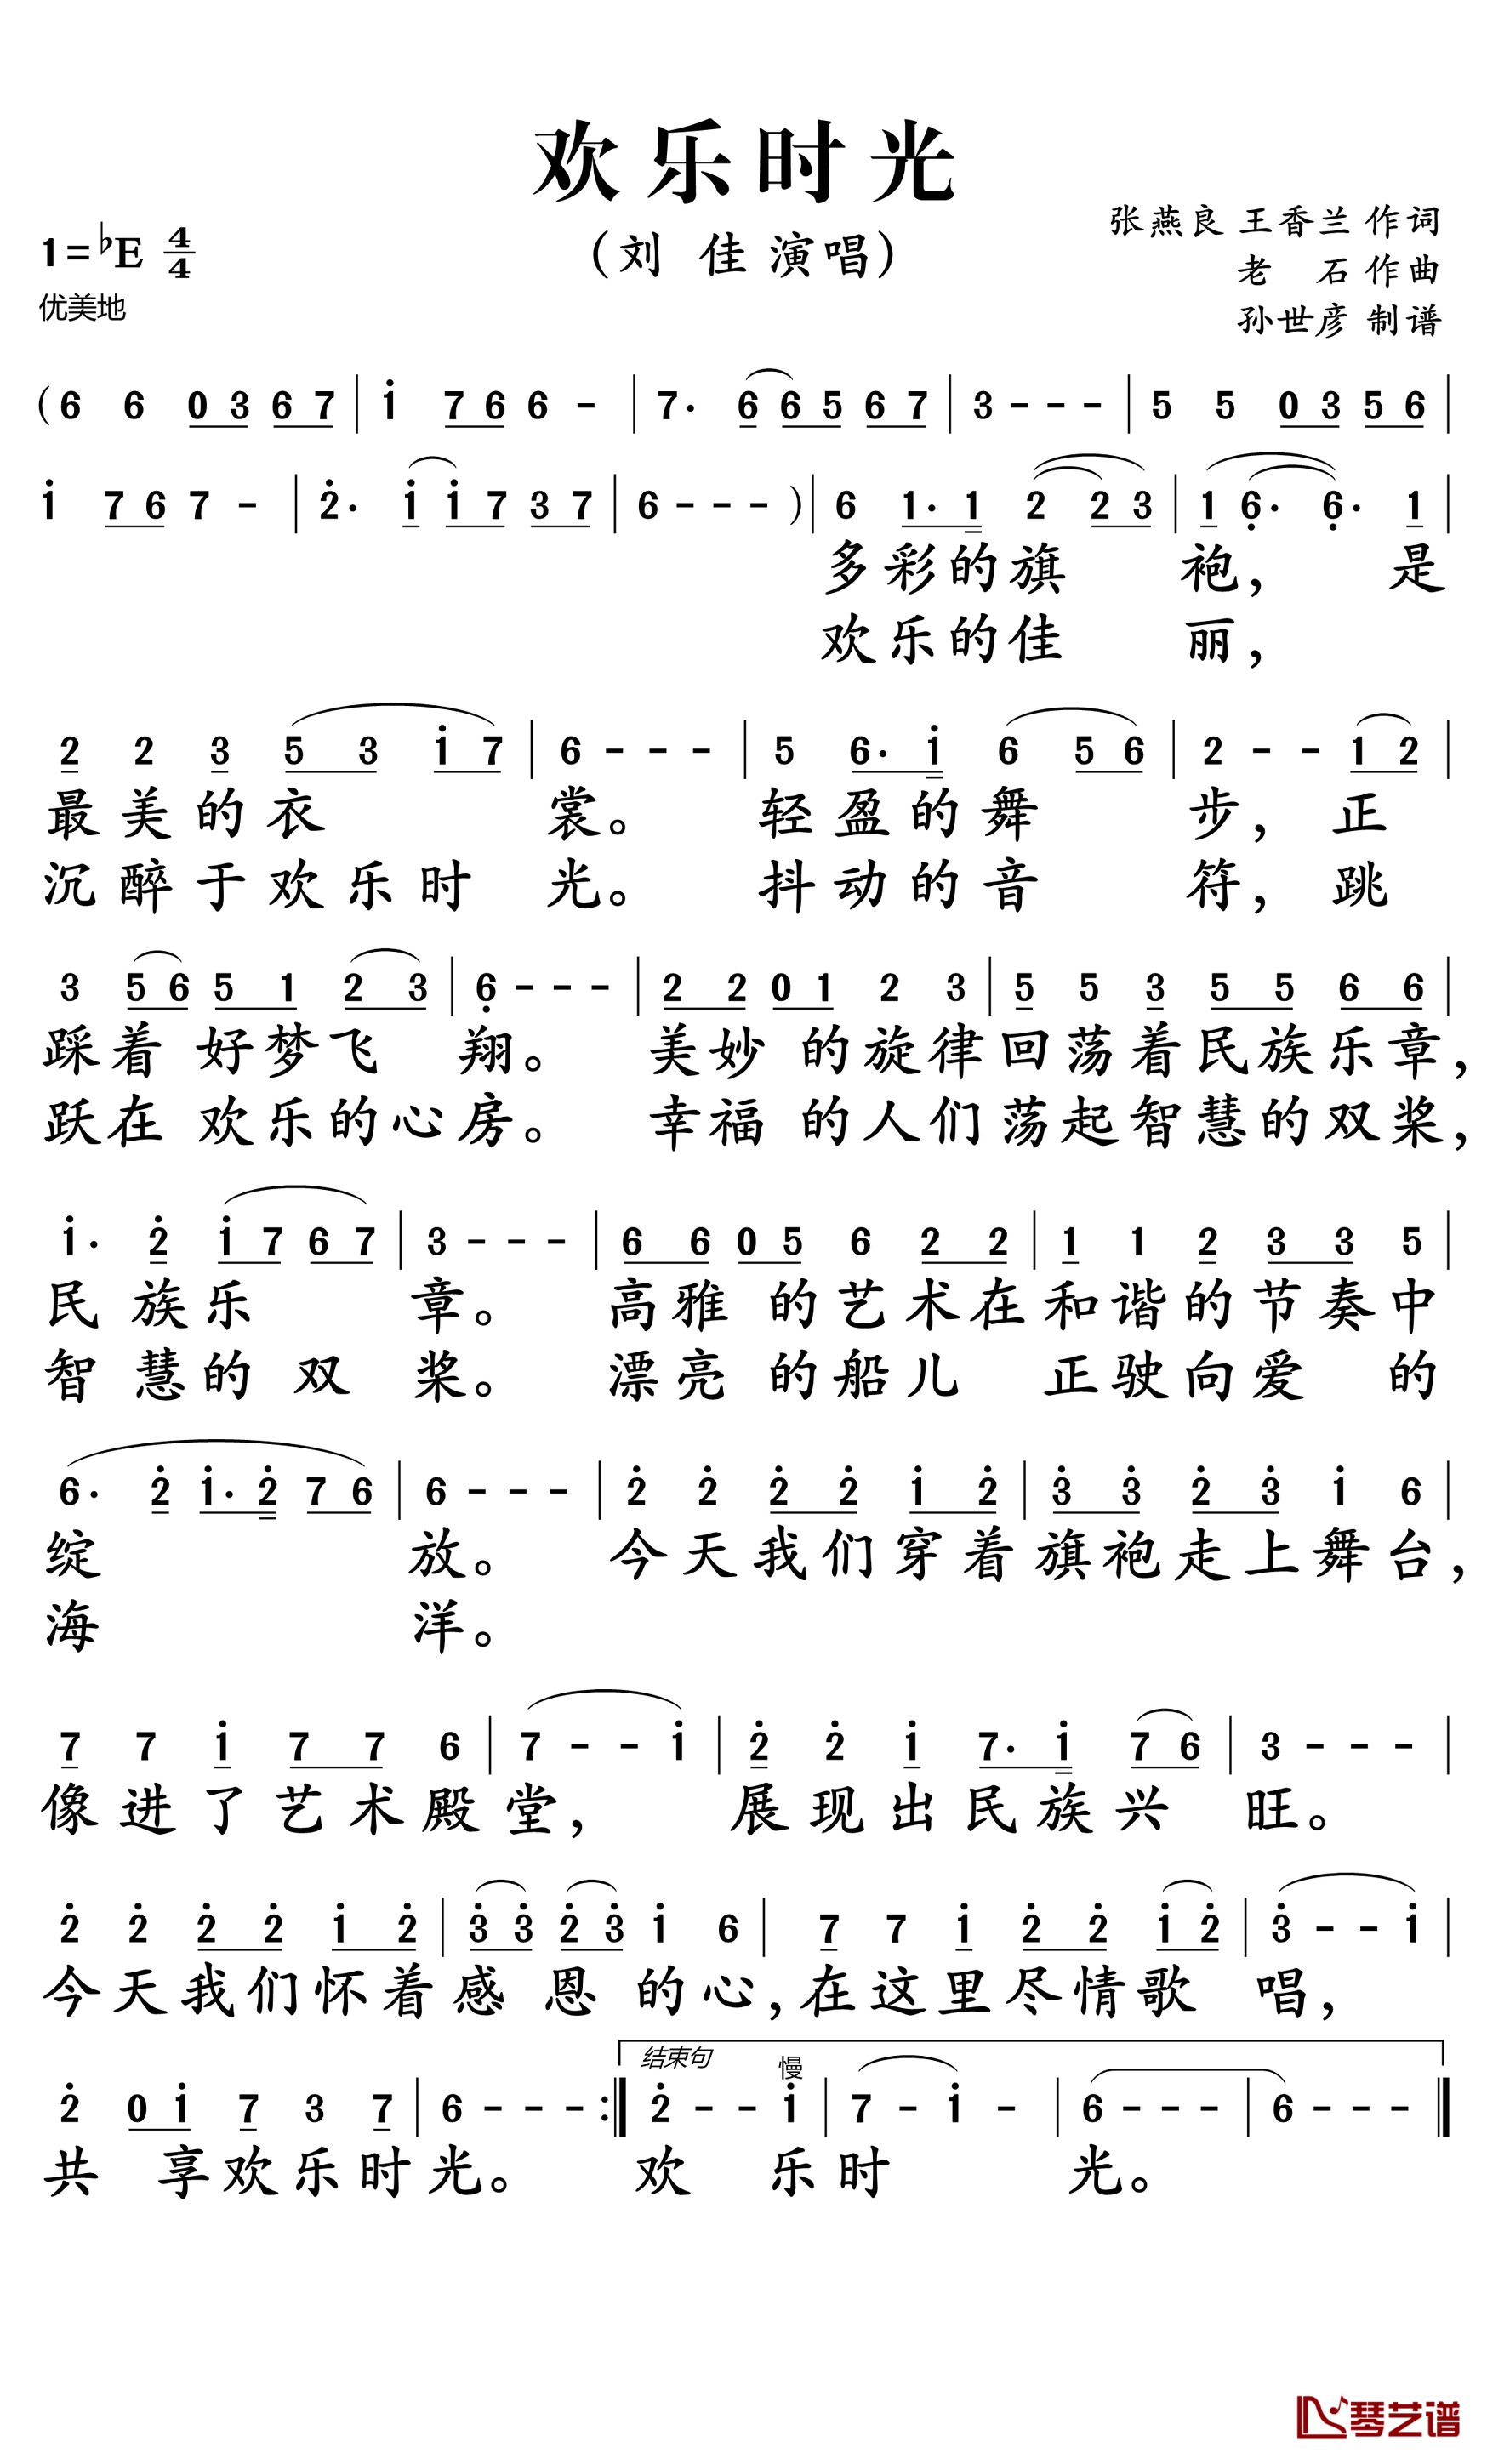 欢乐时光
1=♭E 4/4
(刘 佳演唱)
张燕良 王香兰 作词
老 石作曲
孙世彦 制谱
优美地
(6 6 0 3 6 7 | i 7 6 6 - | 7· 6 6 5 6 7 | 3 - - - | 5 5 0 3 5 6 |
i 7 6 7 - | 2̇· i i 7 3 7 | 6 - - - ) | 6 1· 1 2 2 3 | 1 6̣· 6̣· 1 |
多彩的旗 袍, 是
欢乐的佳 丽,
2 2 3 5 3 i 7 | 6 - - - | 5 6· i 6 5 6 | 2 - - 1 2 |
最美的衣 裳。 轻盈的舞 步, 正
沉醉于欢乐时 光。 抖动的音 符, 跳
3 5 6 5 1 2 3 | 6̣ - - - | 2 2 0 1 2 3 | 5 5 3 5 5 6 6 |
踩着 好梦飞 翔。 美妙 的旋律回荡着民族乐章,
跃在 欢乐的心房。 幸福 的人们荡起智慧的双桨,
i· 2̇ i 7 6 7 | 3 - - - | 6 6 0 5 6 2 2 | 1 1 2 3 3 5 |
民 族乐 章。 高雅 的艺术在和谐的节奏中
智 慧的 双 桨。 漂亮 的船儿 正驶向爱 的
6· 2̇ i· 2̇ 7 6 | 6 - - - | 2̇ 2̇ 2̇ 2̇ i 2̇ | 3̇ 3̇ 2̇ 3̇ i 6 |
绽 放。 今天我们穿着旗袍走上舞台,
海 洋。
7 7 i 7 7 6 | 7 - - i | 2̇ 2̇ i 7· i 7 6 | 3 - - - |
像进了艺术殿堂, 展现出民族兴 旺。
2̇ 2̇ 2̇ 2̇ i 2̇ | 3̇ 3̇ 2̇ 3̇ i 6 | 7 7 i 2̇ 2̇ i 2̇ | 3̇ - - i |
今天我们怀着感 恩 的心,在这里尽情歌 唱,
结束句 慢
2̇ 0 i 7 3 7 | 6 - - - :| 2̇ - - i | 7 - i - | 6 - - - | 6 - - - |
共 享欢乐时光。 欢 乐时 光。
琴艺谱